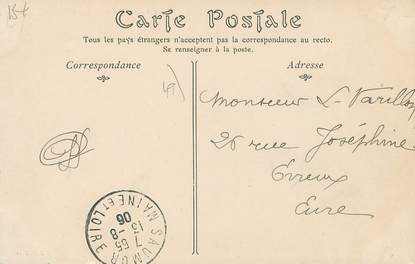 15€
Carte Postale
Tous les pays étrangers n'acceptent pas la correspondance au recto.
Se renseigner à la poste.
Correspondance
Adresse
49
Monsieur L. Varillon
26 rue Joséphine
Evreux
Eure
SAUMUR
7 55
15 -8
06
MAINE ET LOIRE